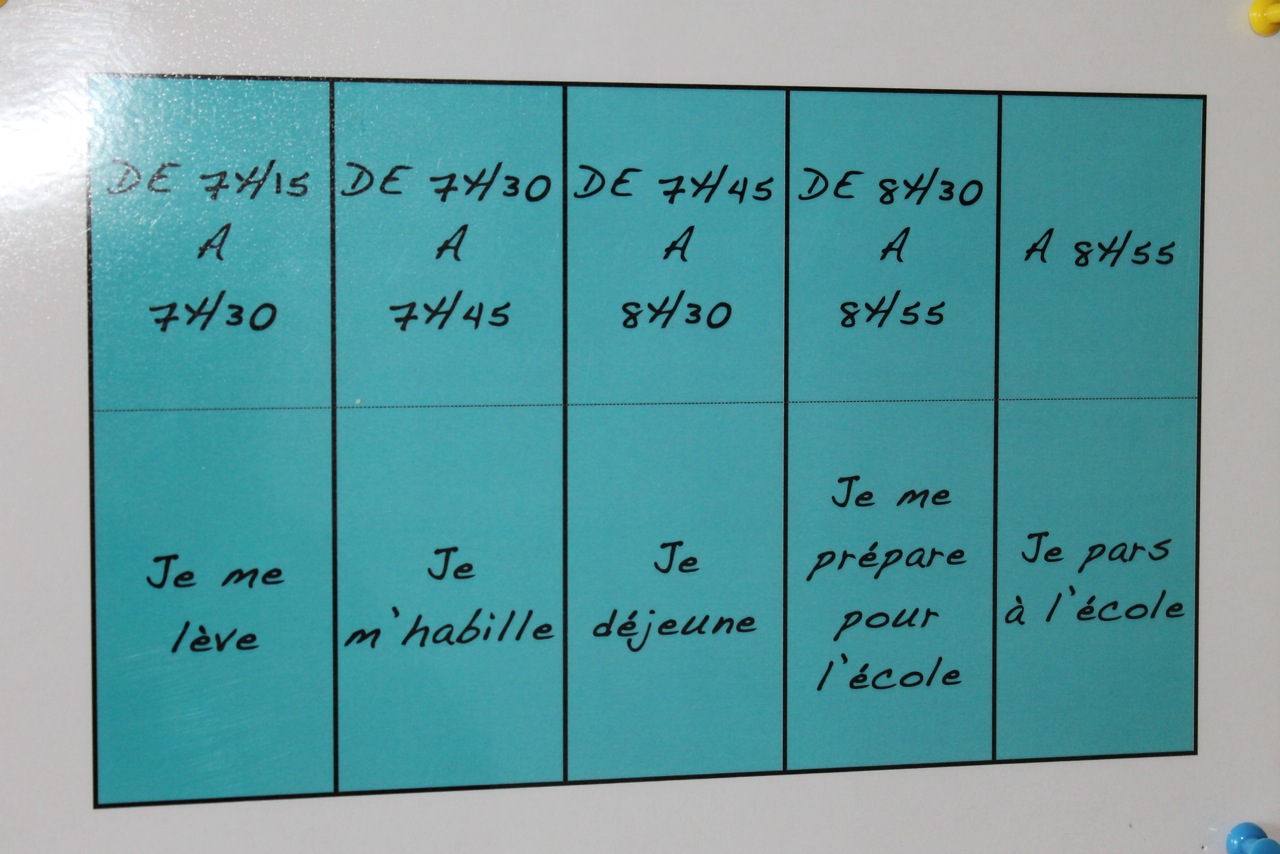 DE 7H15
A
7H30
DE 7H30
A
7H45
DE 7H45
A
8H30
DE 8H30
A
8H55
A 8H55
Je me
lève
Je
m'habille
Je
déjeune
Je me
prépare
pour
l'école
Je pars
à l'école